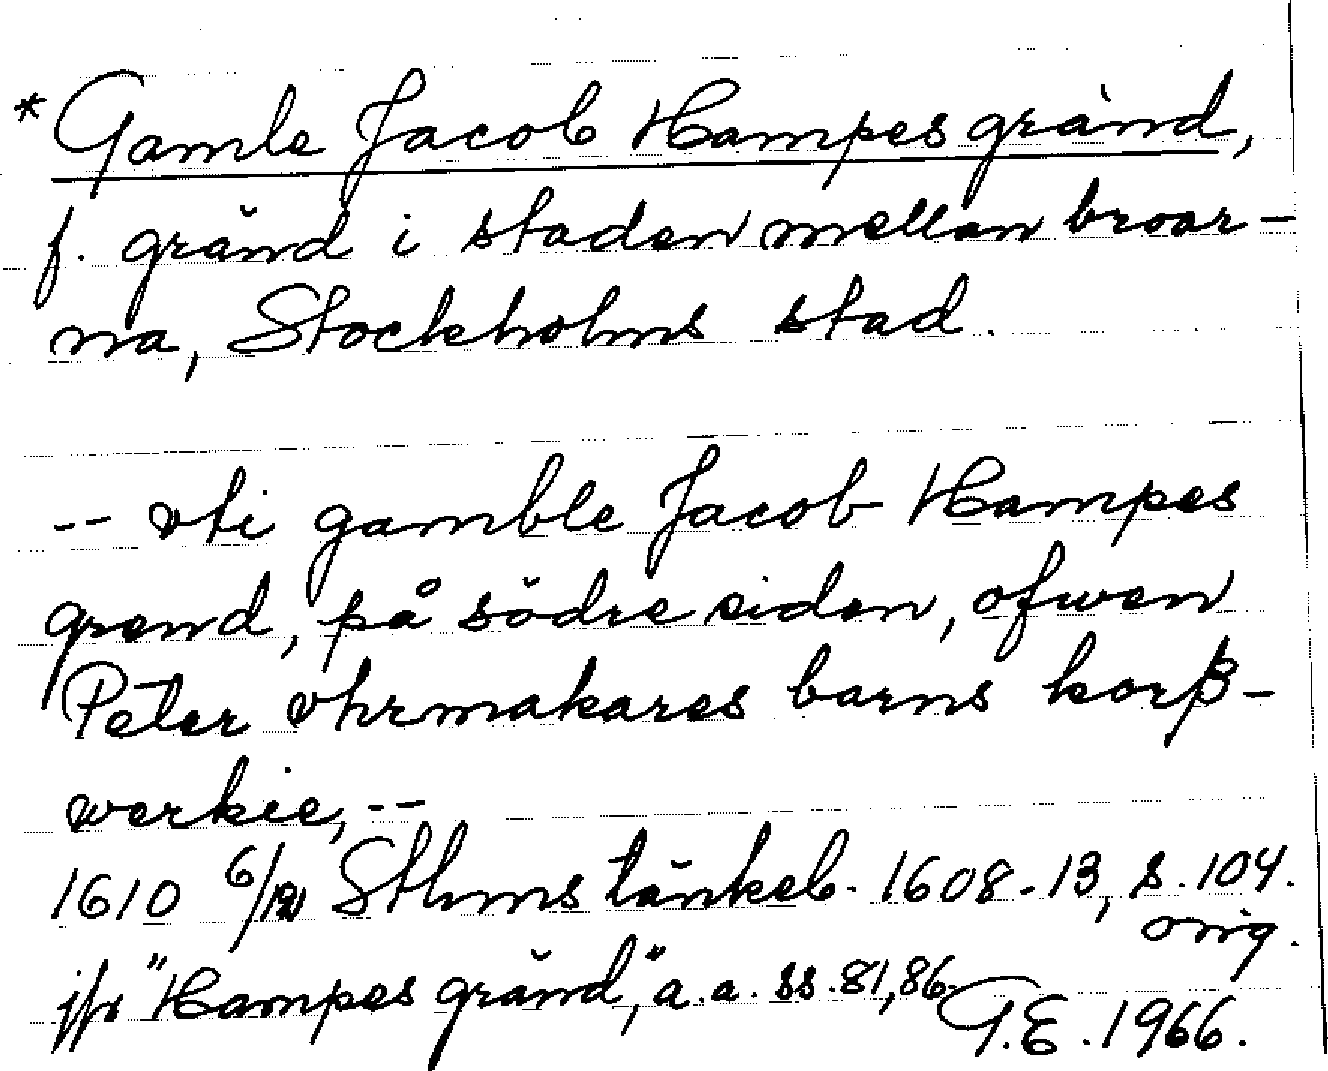 * Gamle Jacob Hampes gränd,
f. gränd i staden mellan broar-
na, Stockholms stad.
-- vti gamble Jacob Hampes
grend, på södre siden, ofwen
Peter vhrmakares barns korß-
werkie, --
1610 6/12 Sthms tänkeb. 1608-13, s. 104.
orig.
jfr "Hampes gränd," a.a. ss. 81, 86.
G.E. 1966.